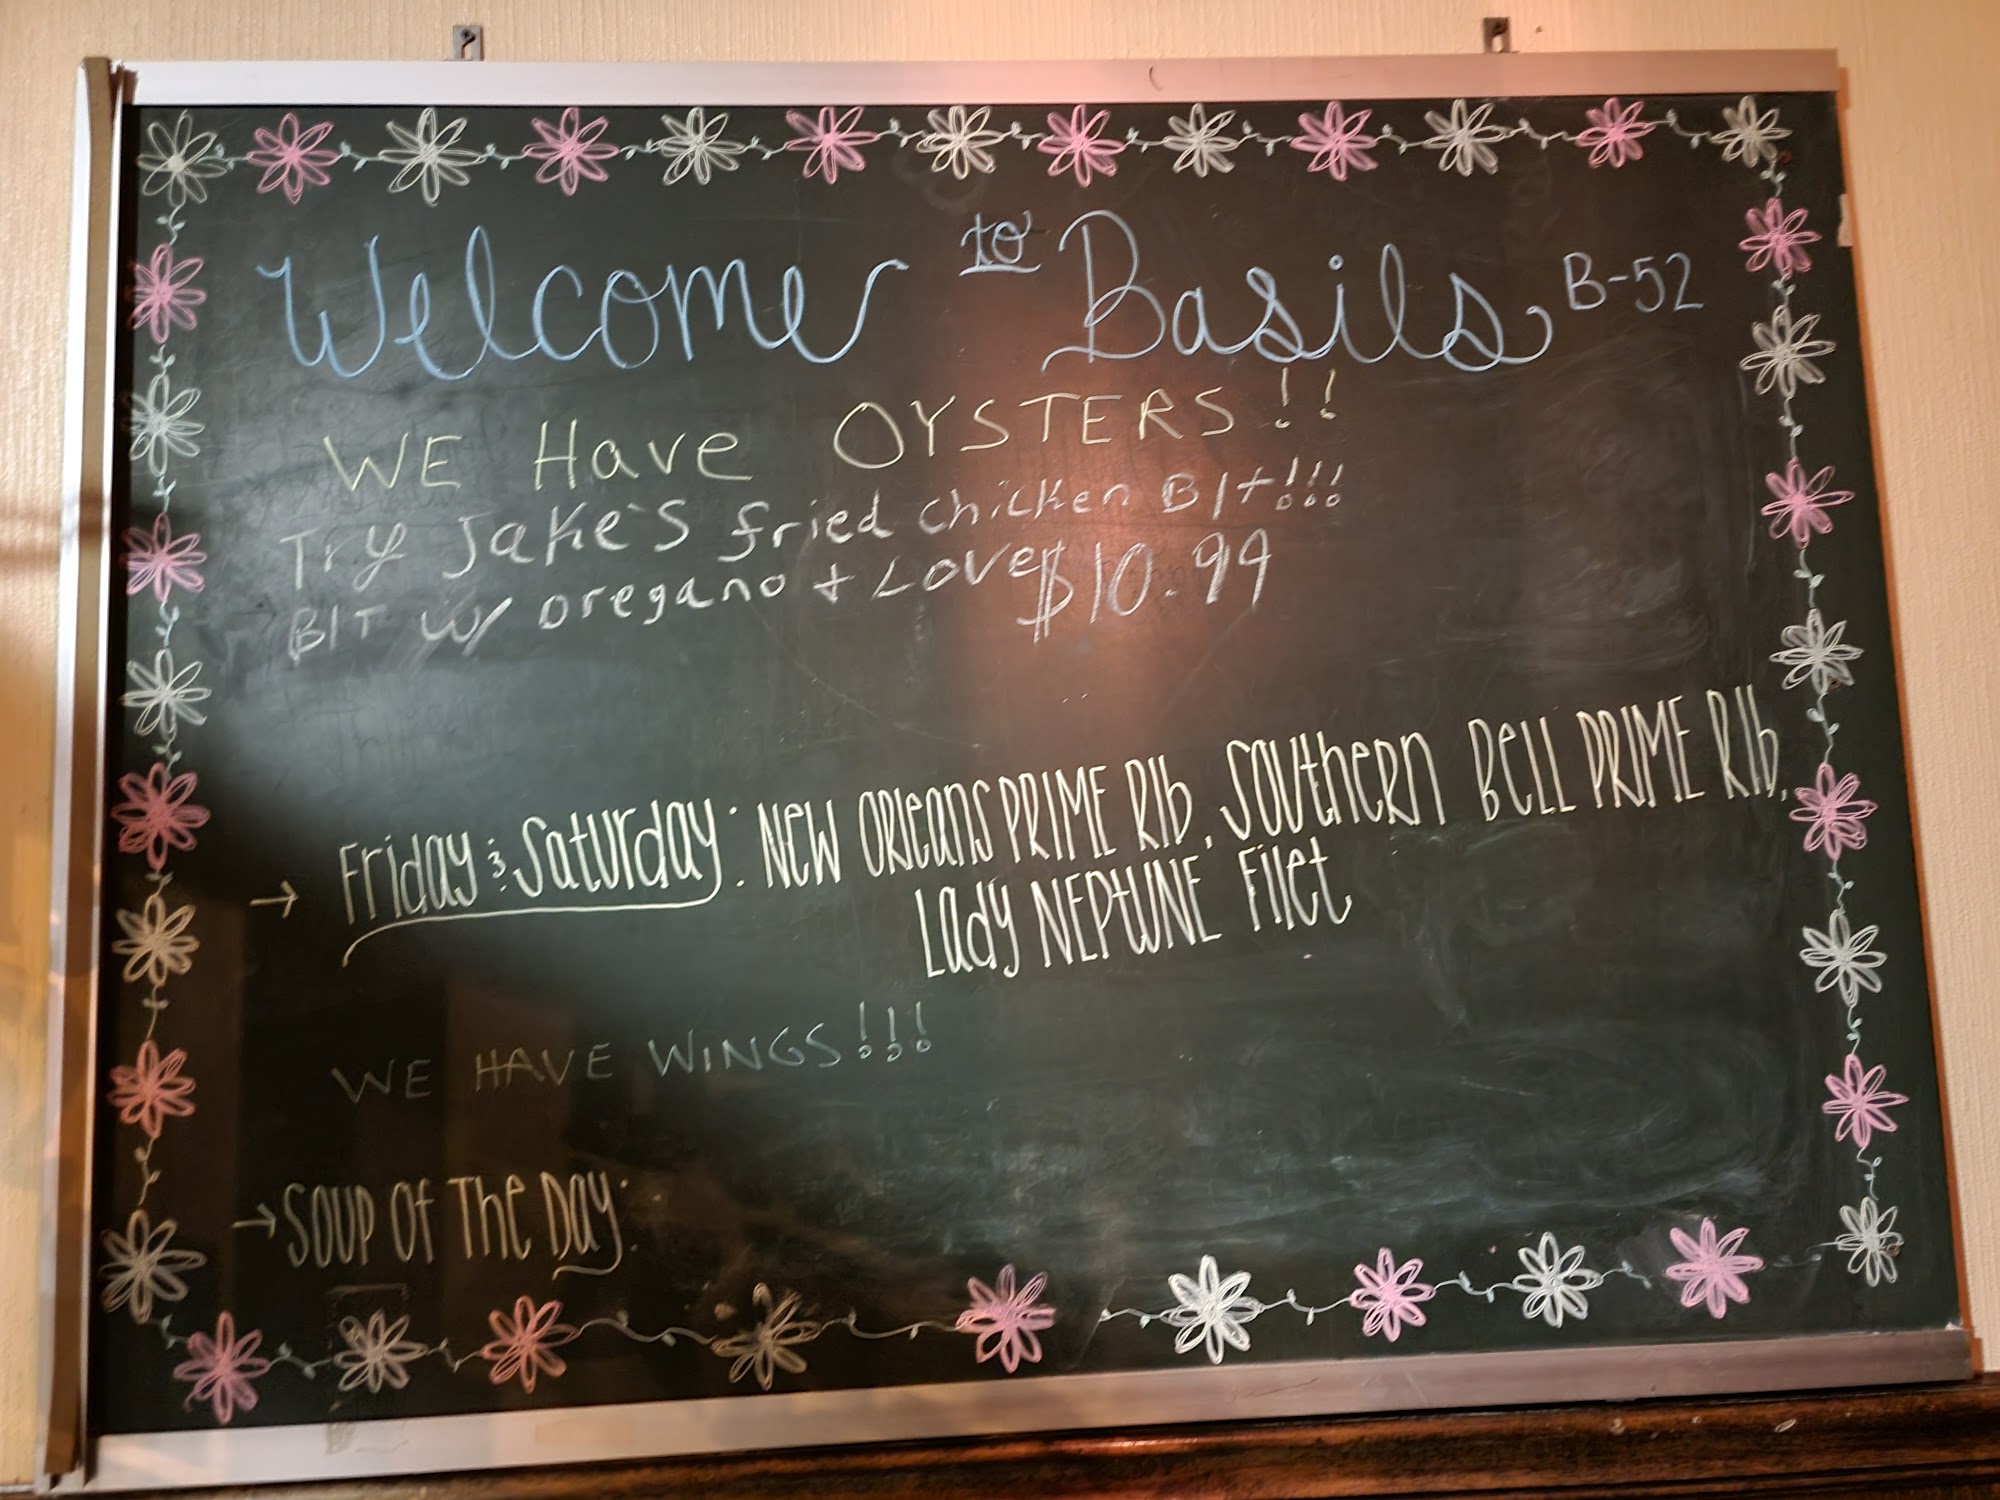 Welcome to Basils B-52
WE Have OYSTERS!!
Try Jake's fried chicken BIt!!!
BIT w/ oregano + Love $10.99
→ Friday & Saturday: New Orleans PRIME RIb, Southern Bell PRIME RIb,
Lady NEPtUNE Filet
WE HAVE WINGS!!!
→ Soup Of The Day: